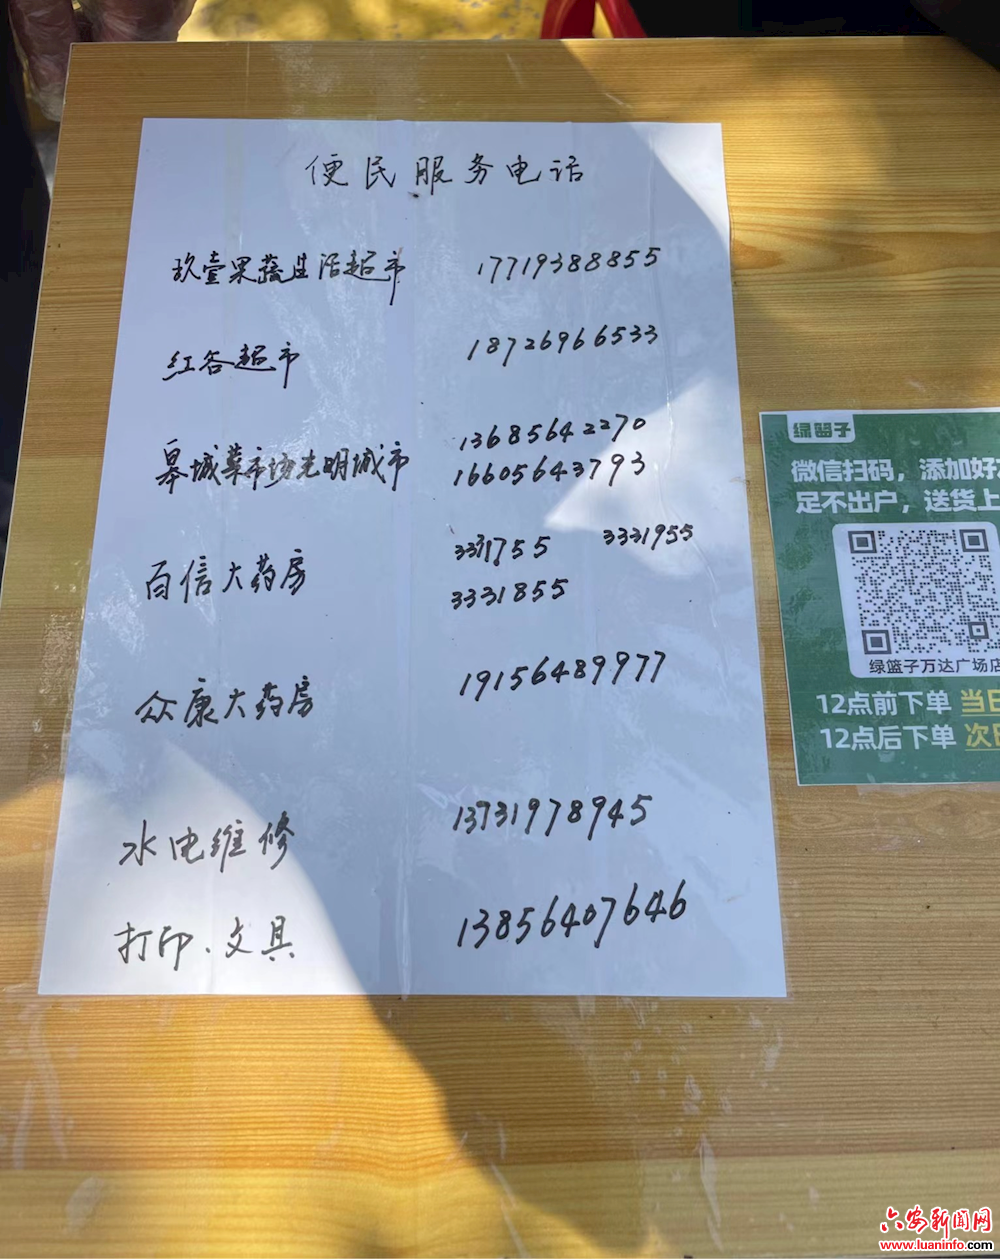 便民服务电话
玖壹果蔬生活超市 17719388855
红谷超市 18726966533
皋城菜市场光明城市 13685642270
16605643793
百信大药房 3331755 3331955
3331855
众康大药房 19156489977
水电维修 13731978945
打印、文具 13856407646
绿篮子
微信扫码，添加好
足不出户，送货上
绿篮子万达广场店
12点前下单 当日
12点后下单 次日
六安新闻网
www.luaninfo.com